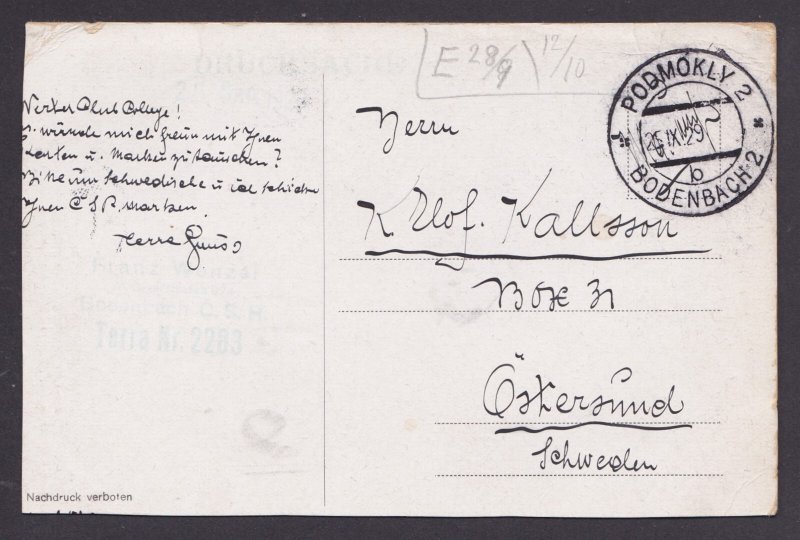 E 28/9 12/10
PODMOKLY 2
25.IX.29
b
BODENBACH 2
Werter Club College!
würde mich freun mit Ihnen
Karten u. Marken zu tauschen?
Bitte um schwedische u. ich schicke
Ihnen ČSR Marken.
Terra Gruss
Franz Wenzel
Bodenbach Č.S.R.
Terra Nr. 2283
Herrn
K Olof. Kallsson
Box 31
Östersund
Schweden
Nachdruck verboten